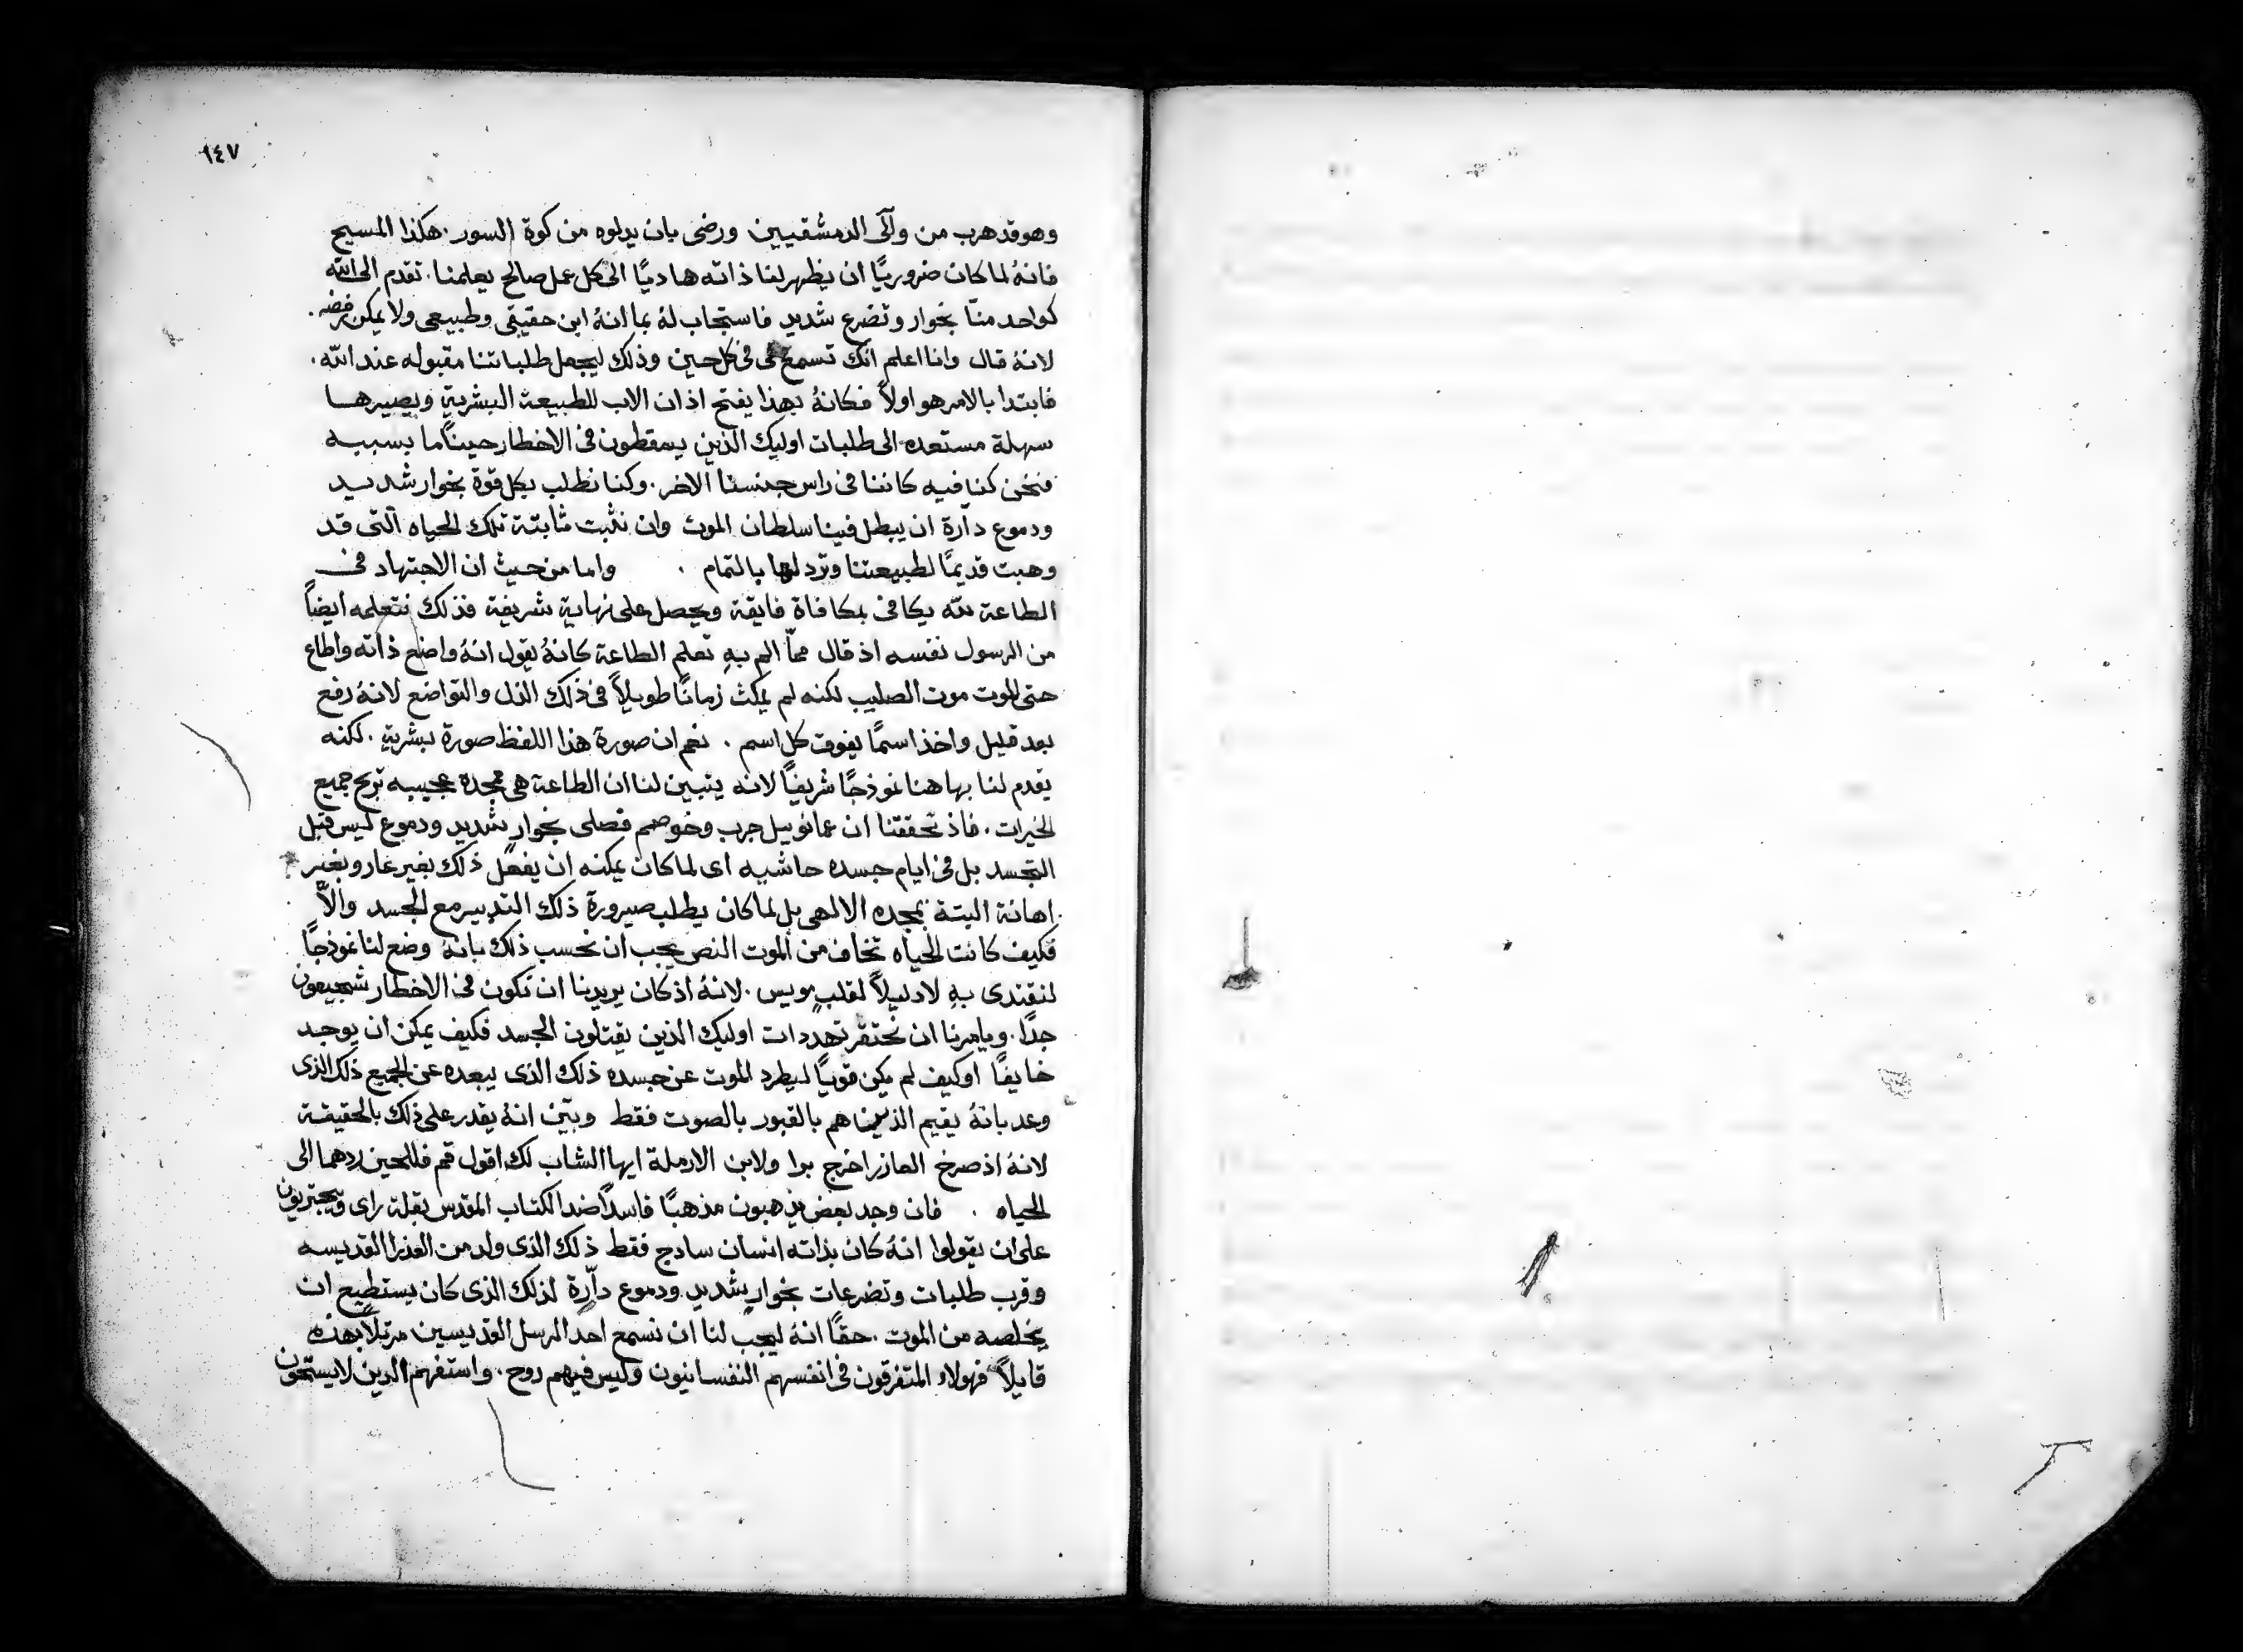 ١٤٧
وهو قد هرب من والى الدمشقيين ورضى بان يدلوه من كوة السور. هكذا المسيح
فانهُ لما كان ضروريًا ان يظهر لنا ذاته هاديًا الى كل عمل صالح يعلمنا. تقدم الى الله
كواحد منّا بخوار وتضرع شديد فاستجاب لهُ بما انهُ ابن حقيقى وطبيعى ولا يمكن رفضه.
لانهُ قال وانا اعلم انك تسمع لى فى كل حين وذلك ليجعل طلباتنا مقبوله عند الله.
فابتدا بالامر هو اولاً فكانهُ بهذا يفتح اذان الاب للطبيعة البشرية ويصيرها
سهلة مستعده الى طلبات اوليك الذين يسقطون فى الاخطار حينًا ما بسببه
فنحن كنا فيه كاننا فى راس جنسنا الاخر. وكنا نطلب بكل قوة بخوار شديد
ودموع دارة ان يبطل فينا سلطان الموت وان نثبت ثابتة تلك الحياه التى قد
وهبت قديمًا لطبيعتنا وترد لها بالتمام . واما من حيث ان الاجتهاد فى
الطاعة لله يكافى بمكافاة فايقة ويحصل على نهاية شريفة فذلك نتعلمه ايضاً
من الرسول نفسه اذ قال ممّا الم بهِ تعلم الطاعة كانهُ يقول انهُ واضع ذاته واطاع
حتى الموت موت الصليب لكنه لم يمكث زمانًا طويلاً فى ذلك الذل والتواضع لانهُ رفع
بعد قليل واخذ اسمًا يفوق كل اسم . نعم ان صورة هذا اللفظ صورة بشرية. لكنه
يقدم لنا بها هنا نموذجًا شريفًا لانه يتبين لنا ان الطاعة هى مجدة عجيبه تربح جميع
الخيرات. فاذ تحققنا ان عمانوييل جرب وخوصم فصلى بخوار شديد ودموع ليس قبل
التجسد بل فى ايام جسده حاشيه اى لما كان يمكنه ان يفعل ذلك بغير عار وبغير
اهانة البتة بمجده الالهى بل لما كان يطلب صيرورة ذلك التدبير مع الجسد والاّ
فكيف كانت الحياه تخاف من الموت النص يجب ان نحسب ذلك بانهُ وضع لنا نموذجًا
لنقتدى بهِ لا دليلاً لقلبٍ مويس. لانهُ اذ كان يريدنا ان نكون فى الاخطار شجيعون
جدًا. ويامرنا ان نحتقر تهددات اوليك الذين يقتلون الجسد فكيف يمكن ان يوجد
خايفًا او كيف لم يكن قويًا ليطرد الموت عن جسده ذلك الذى يبعده عن الجميع ذلك الذى
وعد بانهُ يقيم الذين هم بالقبور بالصوت فقط وبيّن انهُ يقدر على ذلك بالحقيقة
لانهُ اذ صرخ العازر اخرج برا ولابن الارملة ايها الشاب لك اقول قم فللحين ردهما الى
الحياه . فان وجد بعض يذهبون مذهبًا فاسدًا ضد الكتاب المقدس بقلة راى ويجتريون
على ان يقولوا انهُ كان بذاته انسان سادج فقط ذلك الذى ولد من العذرا القديسه
وقرب طلبات وتضرعات بخوارٍ شديد ودموع دارّة لذلك الذى كان يستطيع ان
يخلصه من الموت. حقًا انهُ ليجب لنا ان نسمع احد الرسل القديسين مرتلاً بهذه
قايلاً فهولاء المتفرقون فى انفسهم النفسانيون وليس فيهم روح. واستفهم الدين لا يستحون